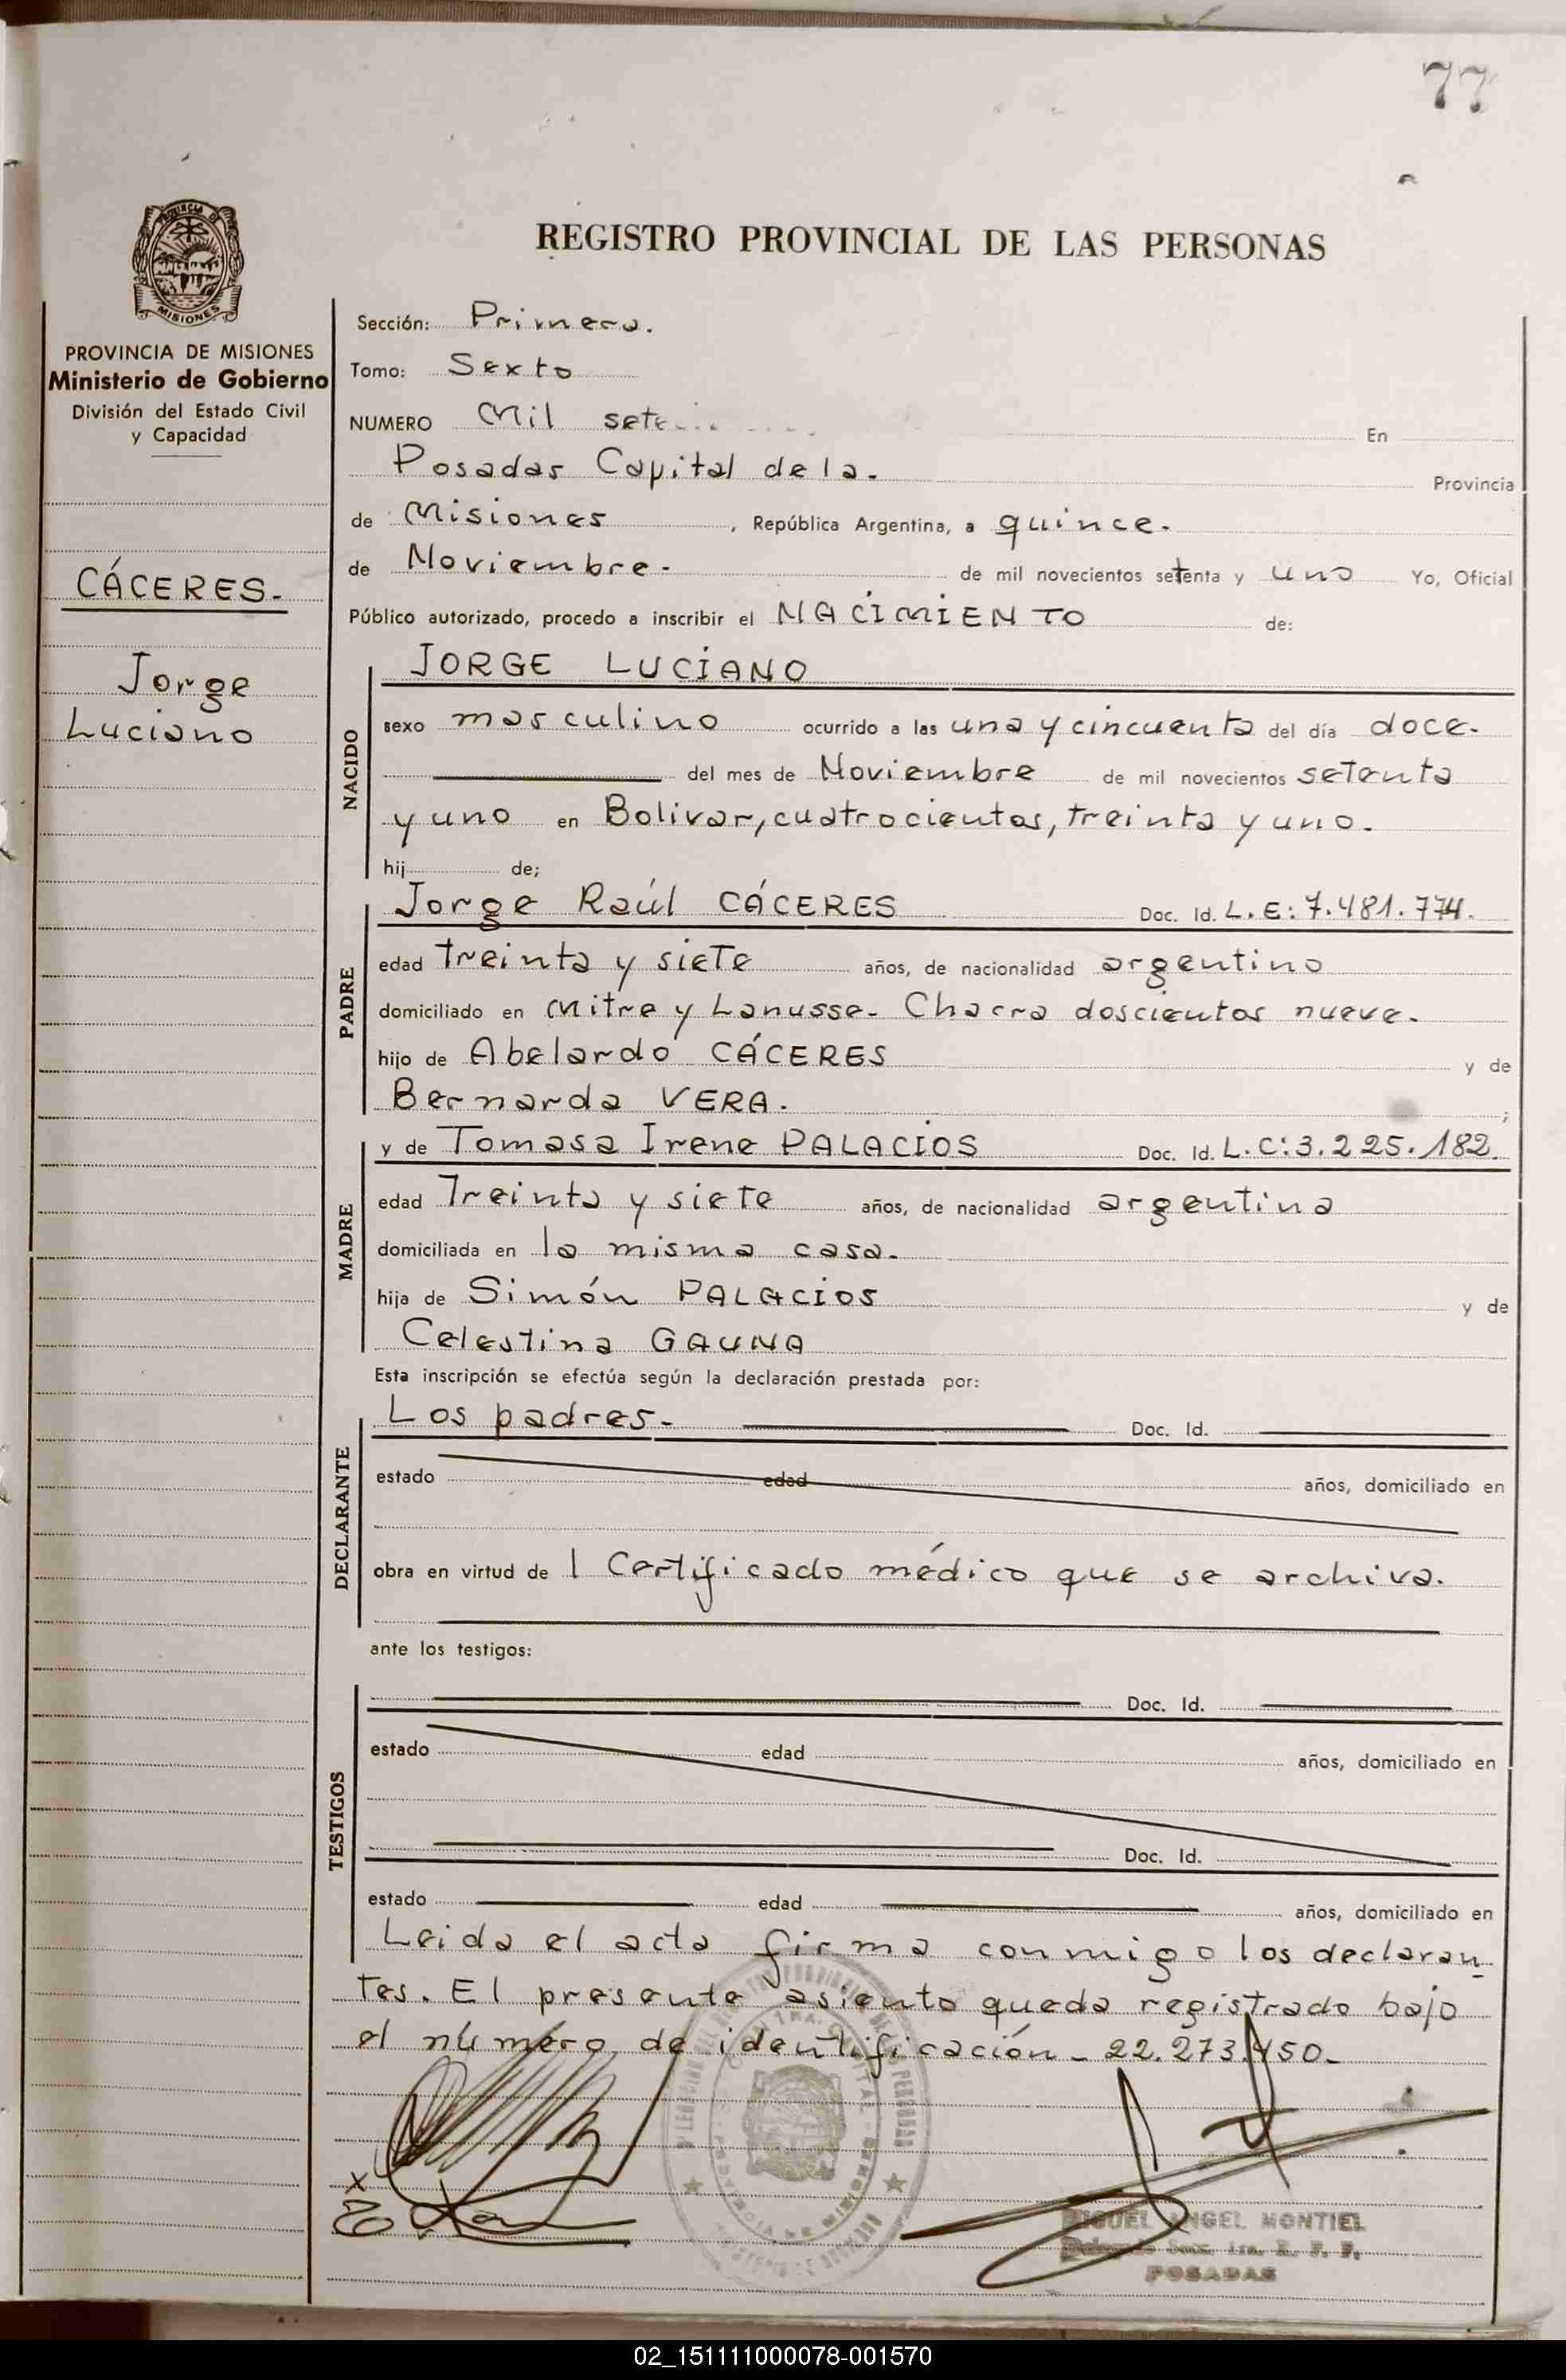 77
PROVINCIA DE
MISIONES
REGISTRO PROVINCIAL DE LAS PERSONAS
PROVINCIA DE MISIONES
Ministerio de Gobierno
División del Estado Civil
y Capacidad
CÁCERES.-
Jorge
Luciano
Sección: Primera.
Tomo: Sexto
NUMERO Mil En
Posadas Capital de la. Provincia
de Misiones , República Argentina, a quince.
de Noviembre. de mil novecientos setenta y uno Yo, Oficial
Público autorizado, procedo a inscribir el NACIMIENTO de:
NACIDO
JORGE LUCIANO
sexo masculino ocurrido a las una y cincuenta del día doce.
del mes de Noviembre de mil novecientos setenta
y uno en Bolivar, cuatrocientos, treinta y uno.
hij de;
PADRE
Jorge Raúl CÁCERES Doc. Id. L.E: 7.481.774.
edad treinta y siete años, de nacionalidad argentino
domiciliado en Mitre y Lanusse. Chacra doscientos nueve.
hijo de Abelardo CÁCERES y de
Bernarda VERA. ;
MADRE
y de Tomasa Irene PALACIOS Doc. Id. L.C: 3.225.182.
edad Treinta y siete años, de nacionalidad argentina
domiciliada en la misma casa.
hija de Simón PALACIOS y de
Celestina GAUNA
Esta inscripción se efectúa según la declaración prestada por:
DECLARANTE
Los padres. Doc. Id.
estado edad años, domiciliado en
obra en virtud de 1 Certificado médico que se archiva.
ante los testigos:
TESTIGOS
Doc. Id.
estado edad años, domiciliado en
Doc. Id.
estado edad años, domiciliado en
Leida el acta firma conmigo los declaran
tes. El presente asiento queda registrado bajo
el número de identificación - 22.273.450.
MIGUEL ANGEL MONTIEL
POSADAS
02_151111000078-001570